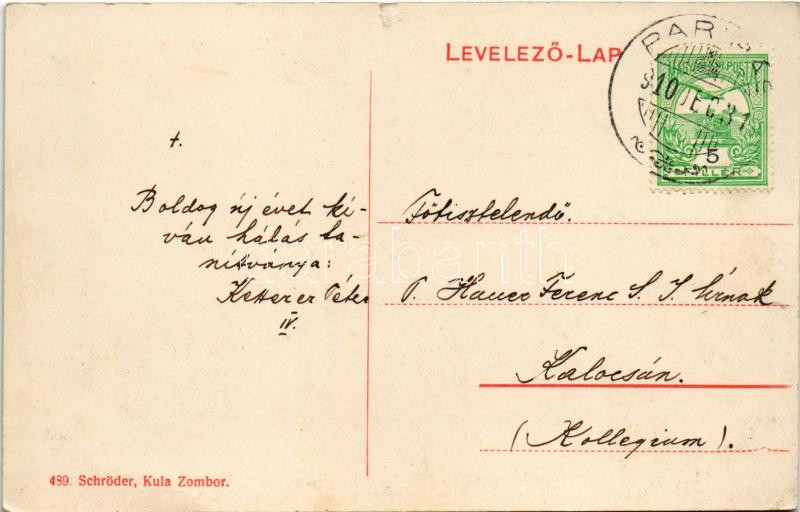 LEVELEZŐ-LAP
910 DEC. 31
5
FILLÉR
+.
Boldog új évet kí-
ván hálás ta-
nítványa:
Ketterer Péter
IV.
Főtisztelendő.
P. Hauer Ferenc S. J. úrnak
Kalocsán.
(Kollegium).
489. Schröder, Kula Zombor.
darabanth